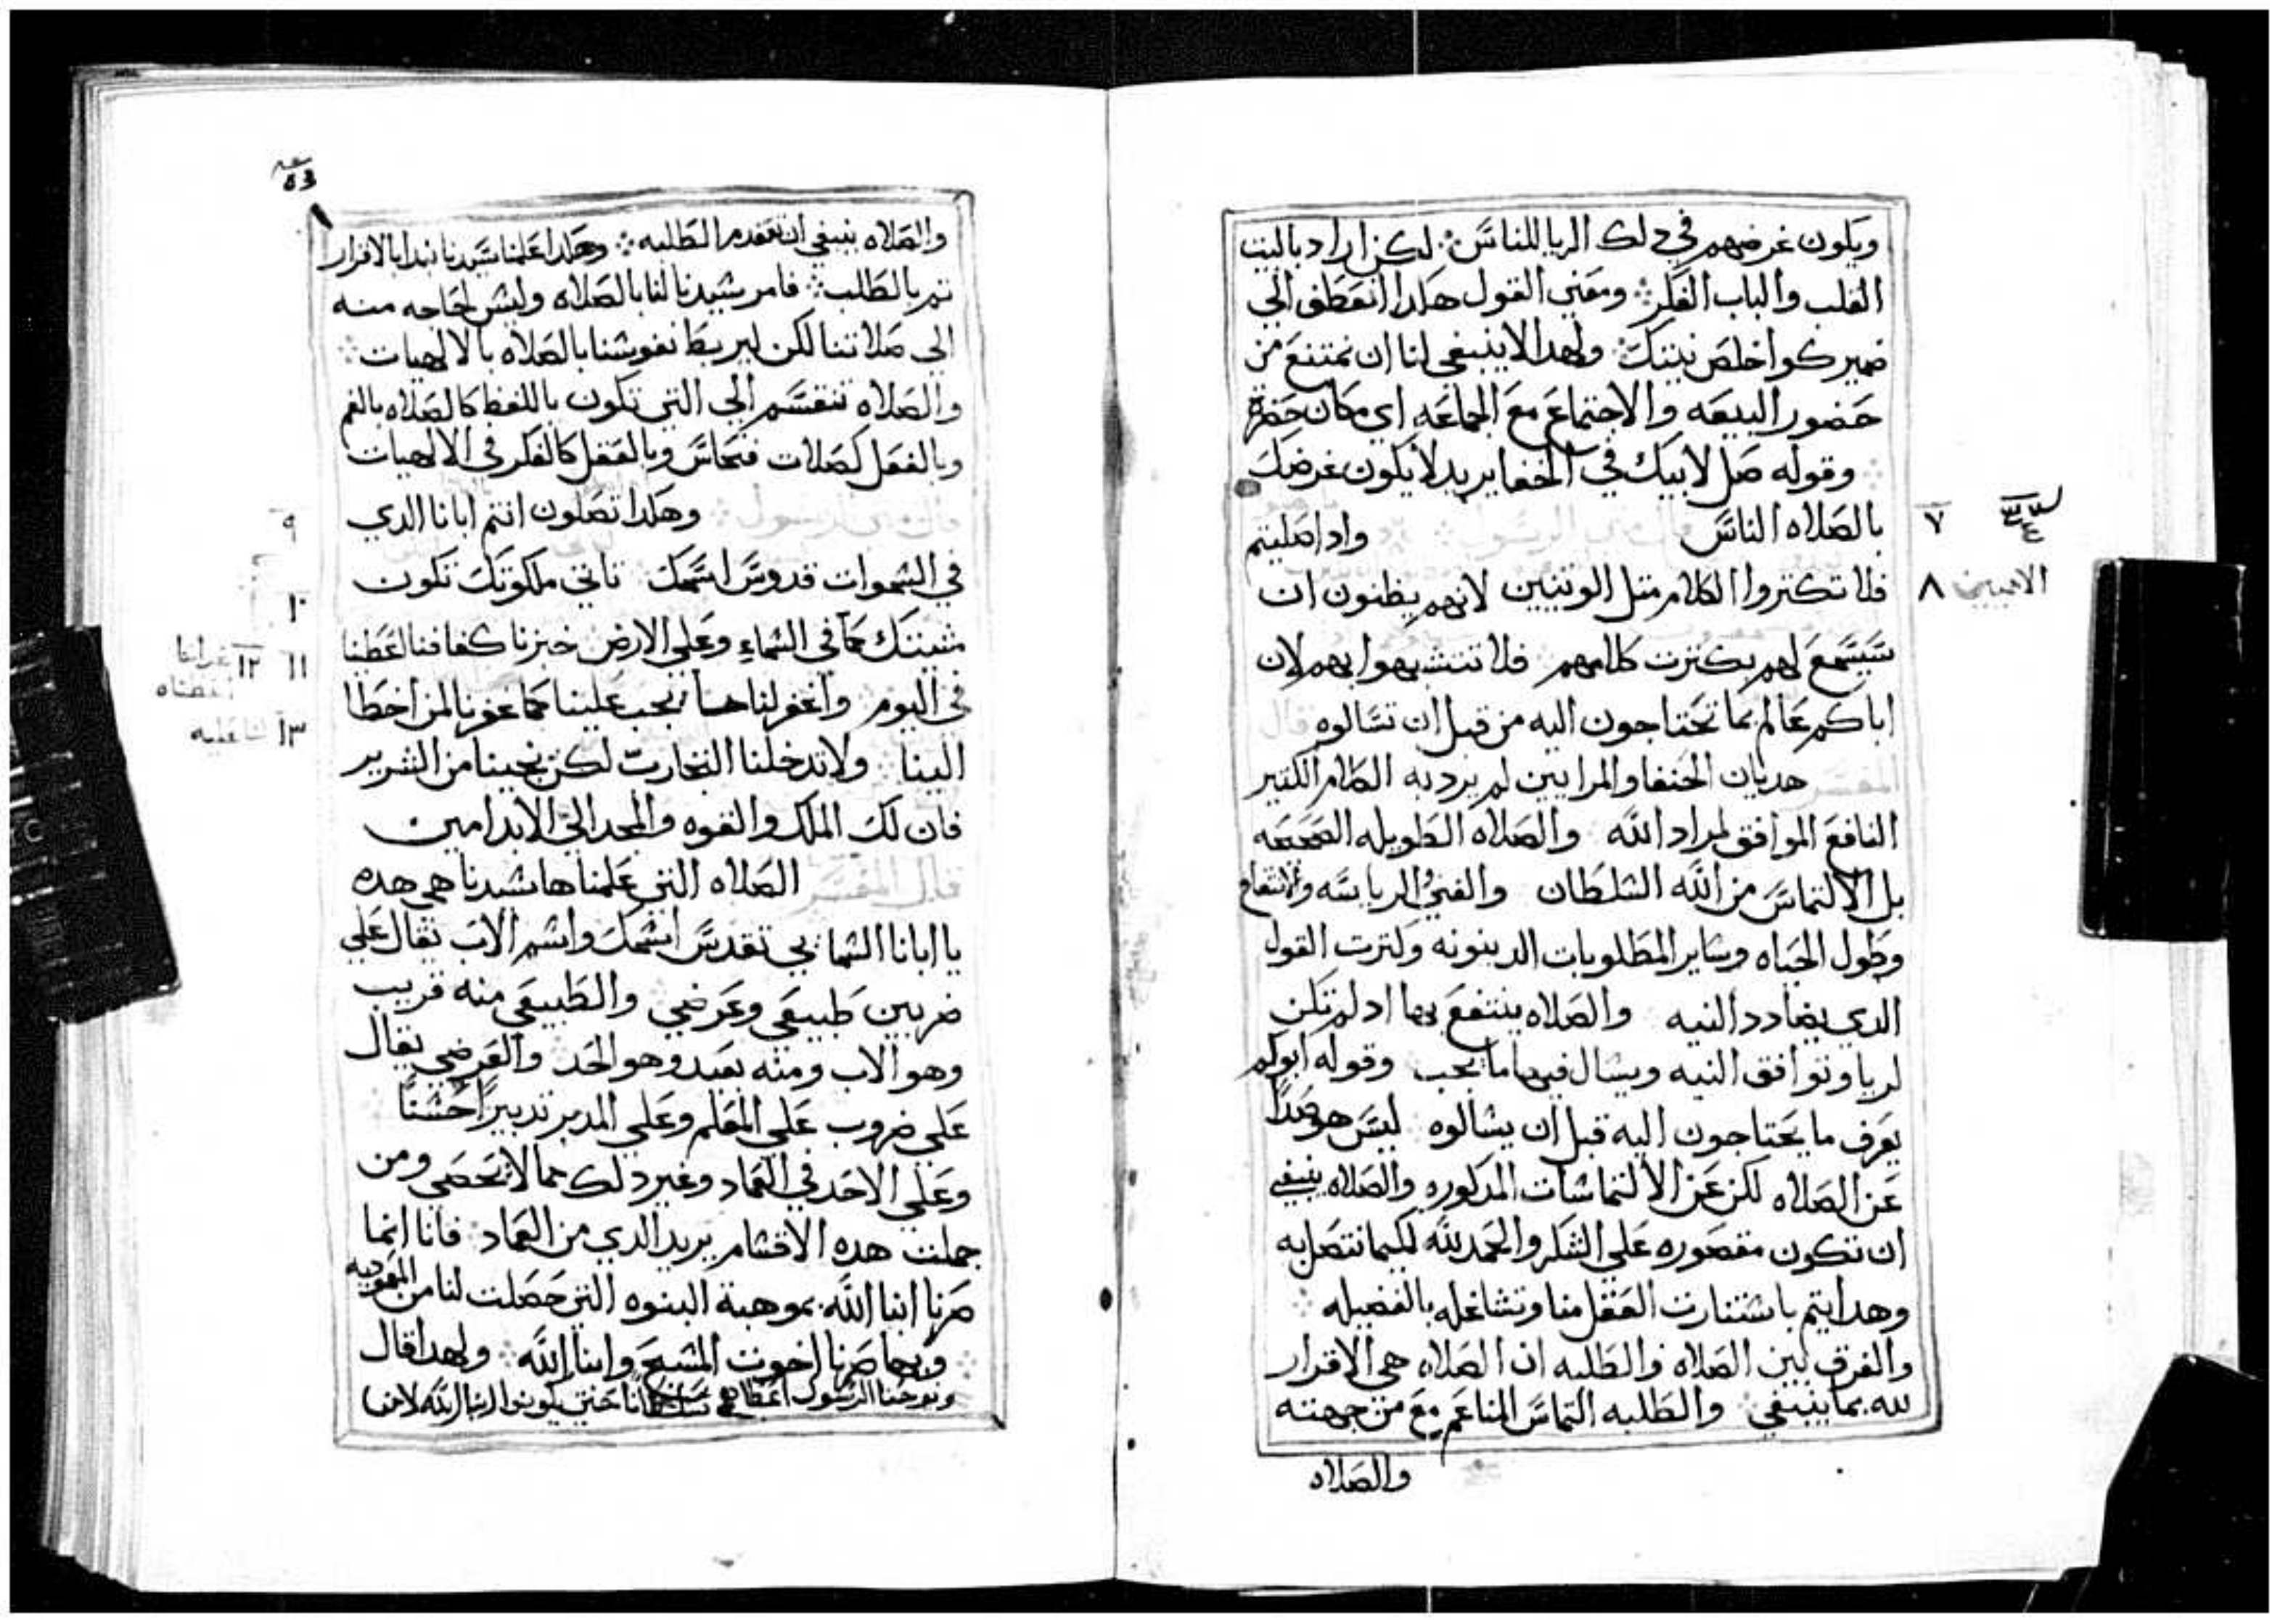 ويكون غرضهم في دلك الريا للناس لكن اراد بالبيت
القلب والباب الفكر ومعني القول هكدا انعطف الي
ضميرك واخلص نيتك ولهدا لا ينبغي لنا ان نمتنع من
حضور البيعه والاجتماع مع الجماعه اي مكان حضرة
وقوله صل لابيك في الخفا يريد لا يكون غرضك
بالصلاه الناس وادا صليتم
٧
فلا تكتروا الكلام متل الوتنيين لانهم يظنون ان
٨ الامميين
سيسمع لهم بكترت كلامهم فلا تتشبهوا بهم لان
اباكم عالم بما تحتاجون اليه من قبل ان تسالوه قال
المفسر هديان الحنفا والمرايين لم يرد به الكلام الكتير
النافع الموافق لمراد الله والصلاه الطويله الصحيحه
بل الالتماس من الله السلطان والغني والرياسه والانتقام
وطول الحياه وساير المطلوبات الدينونه وكترت القول
الدي يضادد النيه والصلاه ينتفع بها اد لم تكن
لريا وتوافق النيه ويسال فيها ما يجب وقوله ابوكم
يعرف ما يحتاجون اليه قبل ان يسالوه ليس هو صدا
عن الصلاه لكن عن الالتماسات المدكوره والصلاه ينبغي
ان تكون مقصوره علي الشكر والحمد لله لكيما نتصل به
وهدا يتم باستنارت العقل منا وتشاغله بالفضيله
والفرق بين الصلاه والطلبه ان الصلاه هي الاقرار
لله بما ينبغي والطلبه التماس المناعم مع من جهته
والصلاه
53
والصلاه ينبغي ان تتقدم الطلبه وهكدا علمنا سيدنا نبدا بالاقرار
تم بالطلب فامر سيدنا لنا بالصلاه وليس لحاجه منه
الي صلاتنا لكن ليربط نفوسنا بالصلاه بالالهيات
والصلاه تنقسم الي التي تكون باللفظ كالصلاه بالفم
وبالفعل كصلات فنحاس وبالعقل كالفكر في الالهيات
وهكدا تصلون انتم ابانا الدي
٩
في السموات قدوس اسمك تاتي ملكوتك تكون
١٠
مشيتك كما في السماء وعلي الارض خبزنا كفافنا اعطنا
١١ ١٢
في اليوم واغفر لنا ما يجب علينا كما غفرنا لمن اخطا
الينا ولا تدخلنا التجارب لكن نجينا من الشرير
١٣
فان لك الملك والقوه والمجد الي الابد امين
قال المفسر الصلاه التي علمناها سيدنا هي هده
يا ابانا السمايي تقدس اسمك واسم الاب يقال علي
ضربين طبيعي وعرضي والطبيعي منه قريب
وهو الاب ومنه بعيد وهو الجد والعرضي يقال
علي ضروب علي المعلم وعلي المدبر تدبيرا حسنا
وعلي الاخد في العماد وغير دلك مما لا يحصي ومن
جملت هده الاقسام يريد الدي من العماد فانا انما
صرنا ابنا الله بموهبة البنوه التي حصلت لنا من المعموديه
وبها صرنا اخوت المسيح وابنا الله ولهدا قال
ويوحنا الرسول سلطانا حتي يكونوا ابنا الله لانها